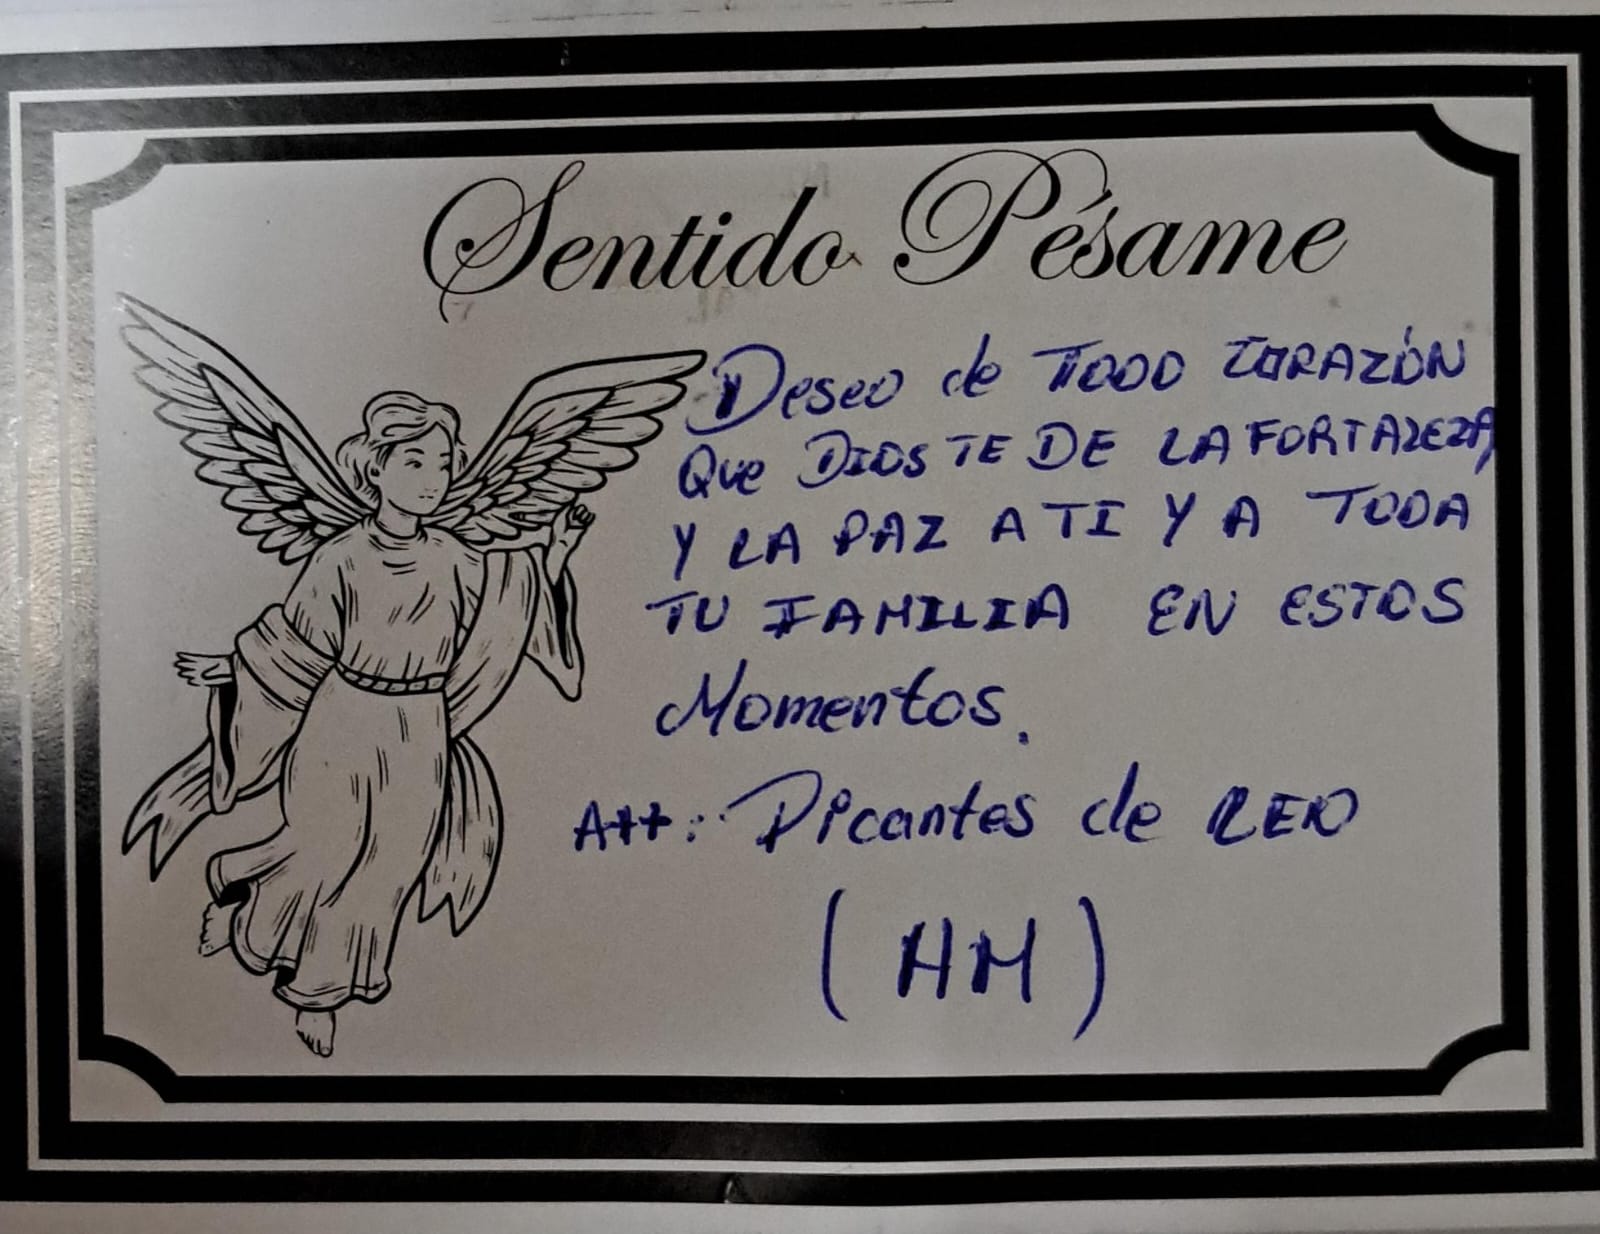 Sentido Pésame
Deseo de TODO CORAZÓN
Que DIOS TE DE LA FORTALEZA,
Y LA PAZ A TI Y A TODA
TU FAMILIA EN ESTOS
Momentos.
Att: Picantes de
(HM)